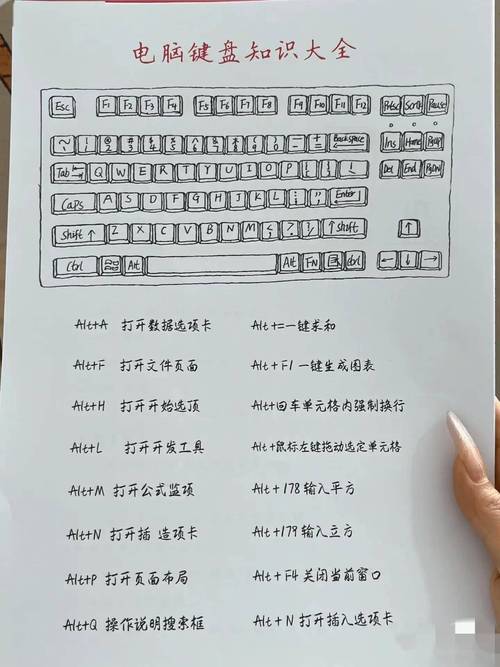 电脑键盘知识大全
Esc F1 F2 F3 F4 F5 F6 F7 F8 F9 F10 F11 F12 Prtsc Scroll Pause
~ ! @ 2 # 3 $ 4 % 5 ^ 6 & 7 * 8 ( 9 ) 0 - + = Backspace Ins Home PgUp
Tab Q W E R T Y U I O P { [ } ] Del End PgDn
Caps A S D F G H J K L ; " Enter
Shift ↑ Z X C V B N M < > ? / ↑ shift ↑
Ctrl Alt Alt FN Ctrl ← ↓ →
Alt+A 打开数据选项卡 Alt+=一键求和
Alt+F 打开文件页面 Alt+F1一键生成图表
Alt+H 打开开始选顶 Alt+回车单元格内强制换行
Alt+L 打开开发工具 Alt+鼠标左键拖动选定单元格
Alt+M 打开公式监项 Alt+178输入平方
Alt+N 打开插 造项卡 Alt+179输入立方
Alt+P 打开页面布局 Alt+F4 关闭当前窗口
Alt+Q 操作说明搜索框 Alt+N打开插入选项卡